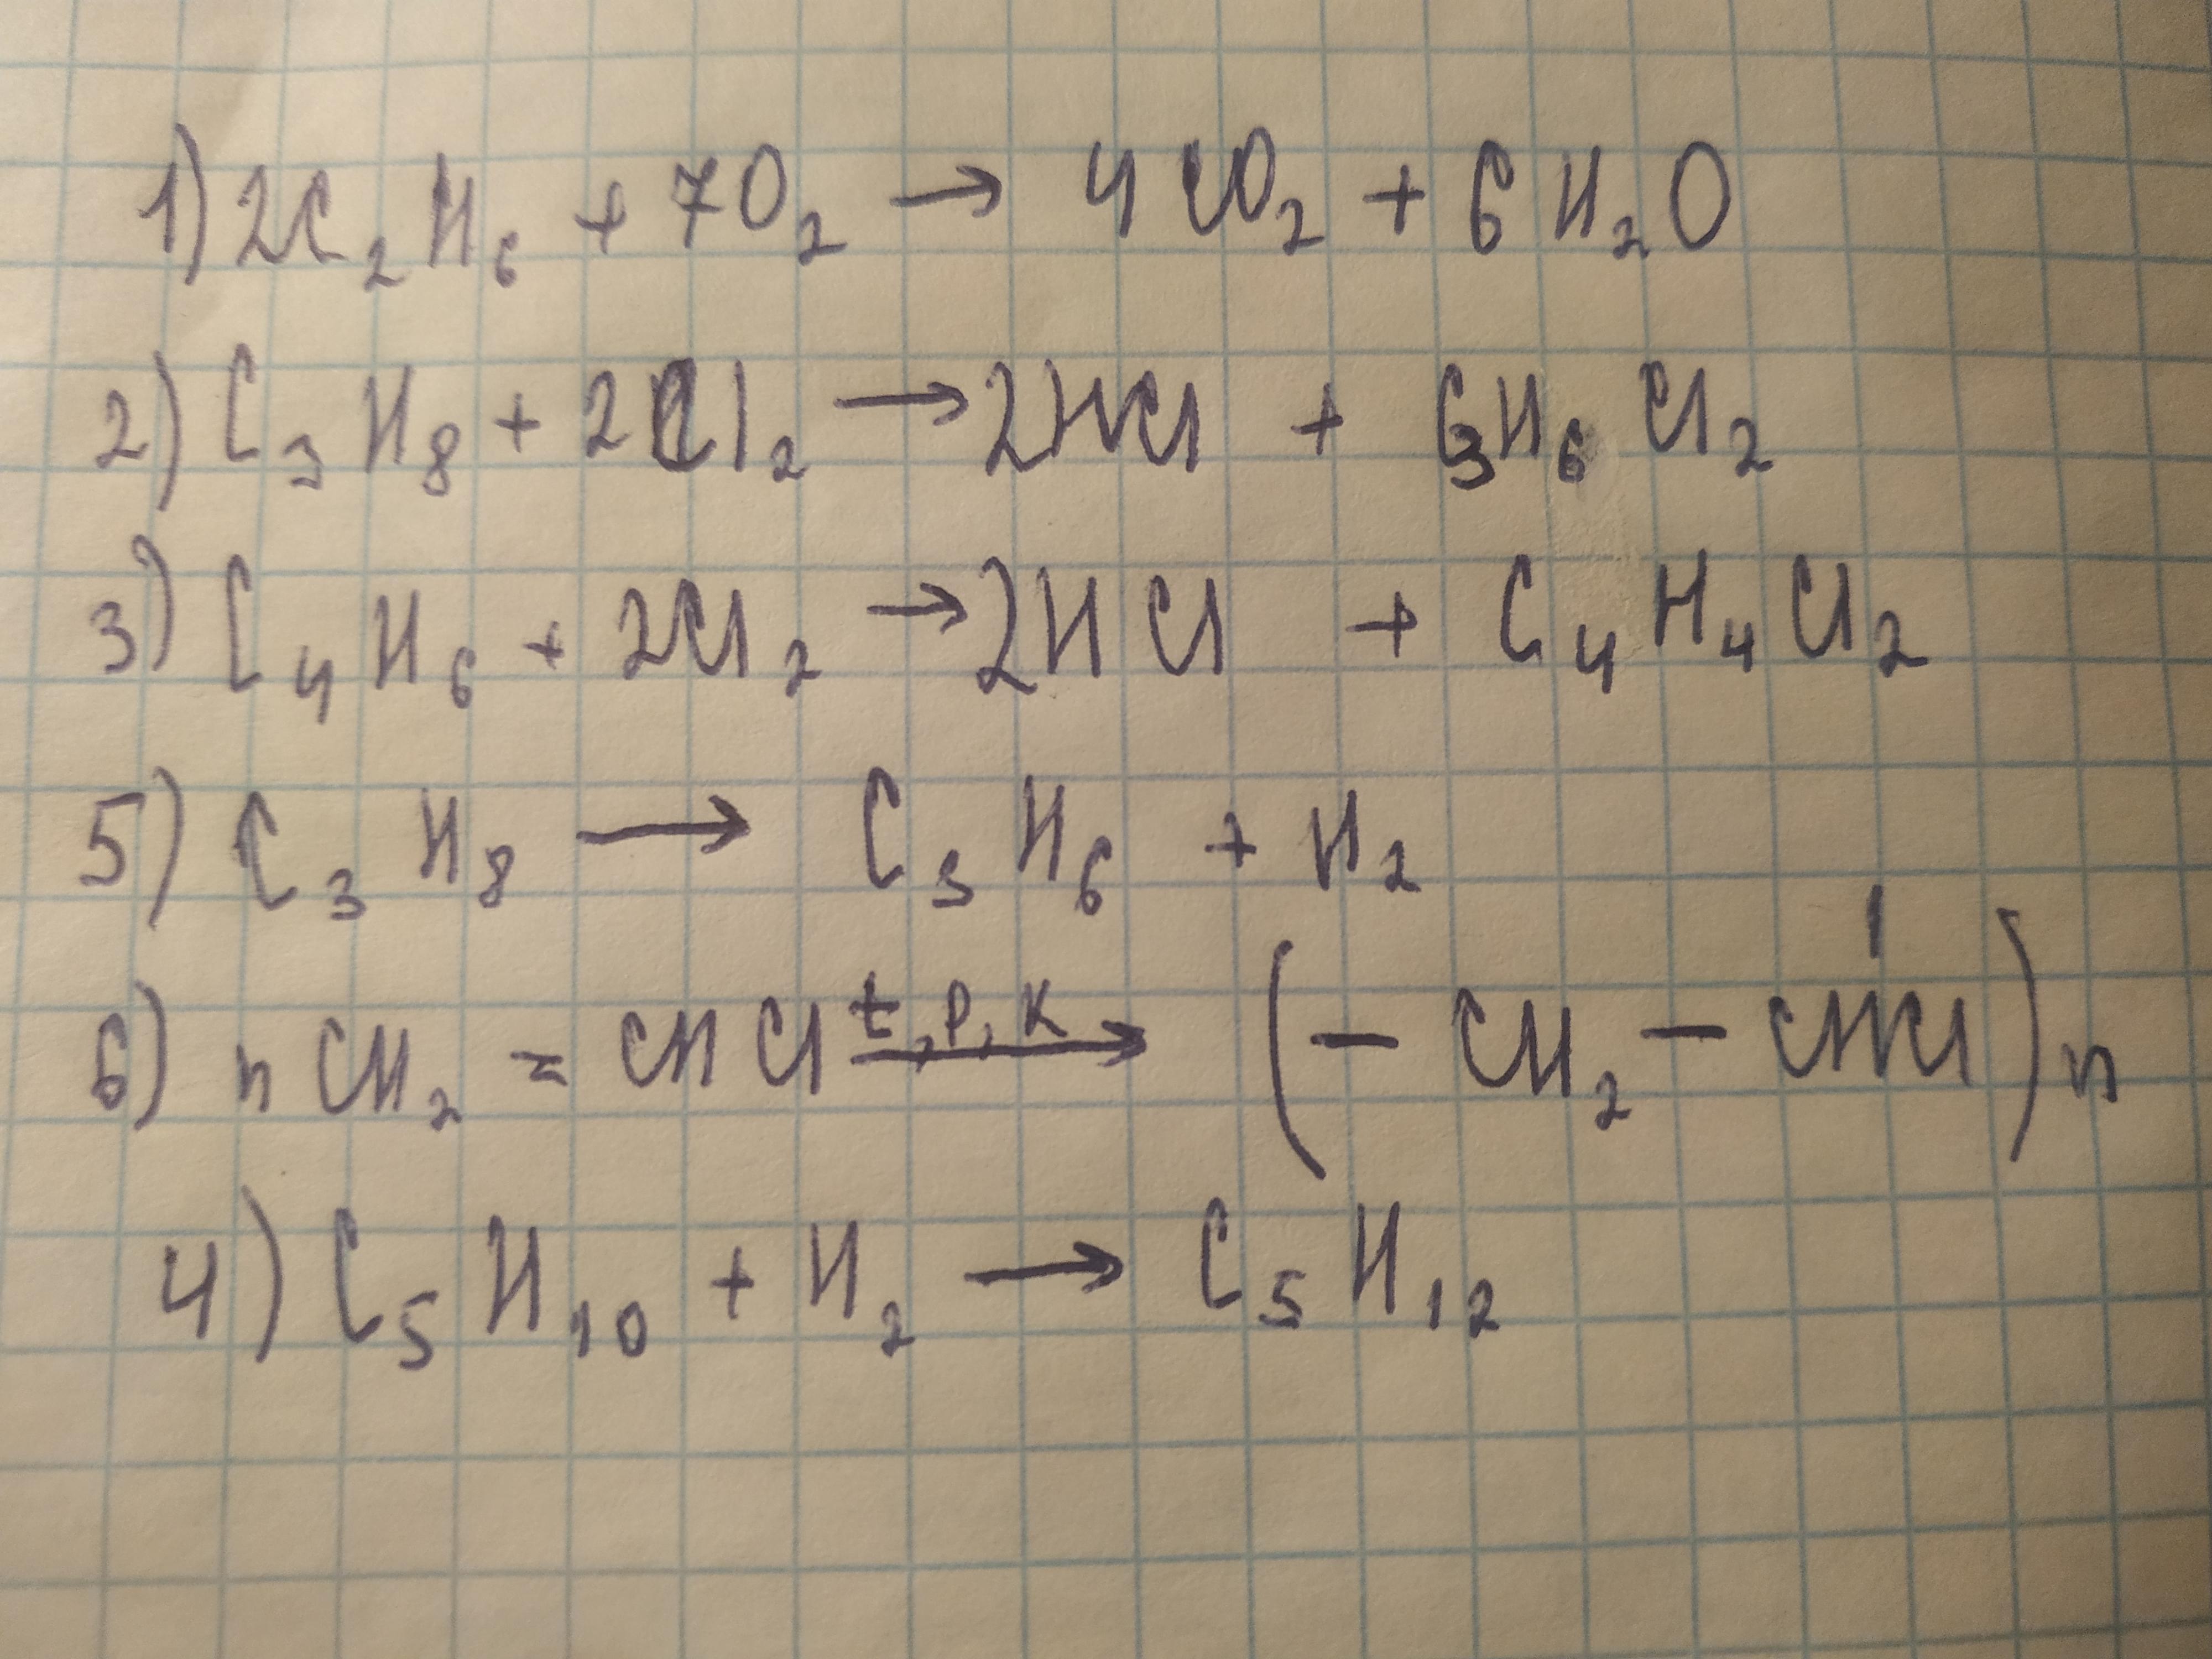 1) 2C₂H₆ + 7O₂ → 4CO₂ + 6H₂O
2) C₃H₈ + 2Cl₂ → 2HCl + C₃H₆Cl₂
3) C₄H₆ + 2Cl₂ → 2HCl + C₄H₄Cl₂
5) C₃H₈ → C₃H₆ + H₂
6) nCH₂ = CHCl t, P, K → (– CH₂ – CHCl)n
4) C₅H₁₀ + H₂ → C₅H₁₂